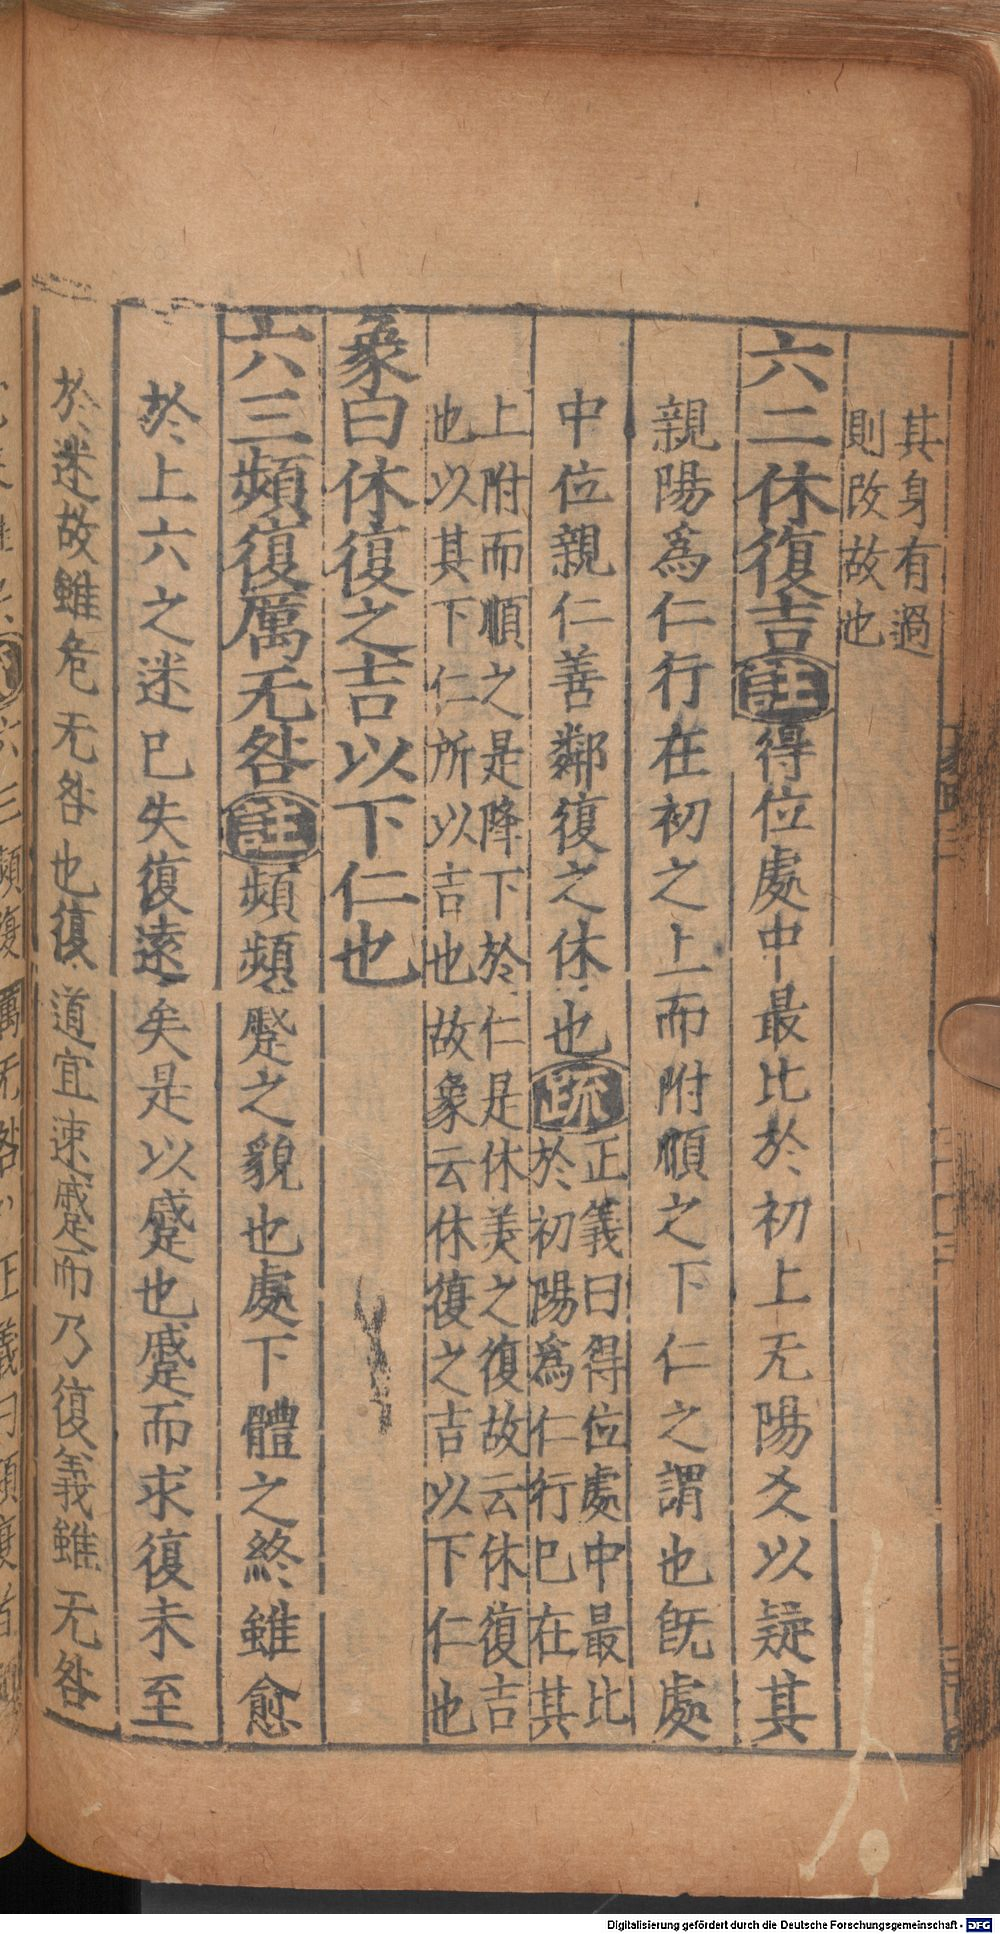 其身有過
則改故也
六二休復吉註得位處中最比於初上无陽爻以疑其
親陽爲仁行在初之上而附順之下仁之謂也旣處
中位親仁善鄰復之休也疏
正義曰得位處中最比
於初陽爲仁行已在其
上附而順之是降下於仁是休美之復故云休復吉
也以其下仁所以吉也故象云休復之吉以下仁也
象曰休復之吉以下仁也
六三頻復厲无咎註頻頻蹙之貌也處下體之終雖愈
於上六之迷已失復遠矣是以蹙也蹙而求復未至
於迷故雖危无咎也復道宜速蹙而乃復義雖无咎
Digitalisierung gefördert durch die Deutsche Forschungsgemeinschaft - DFG